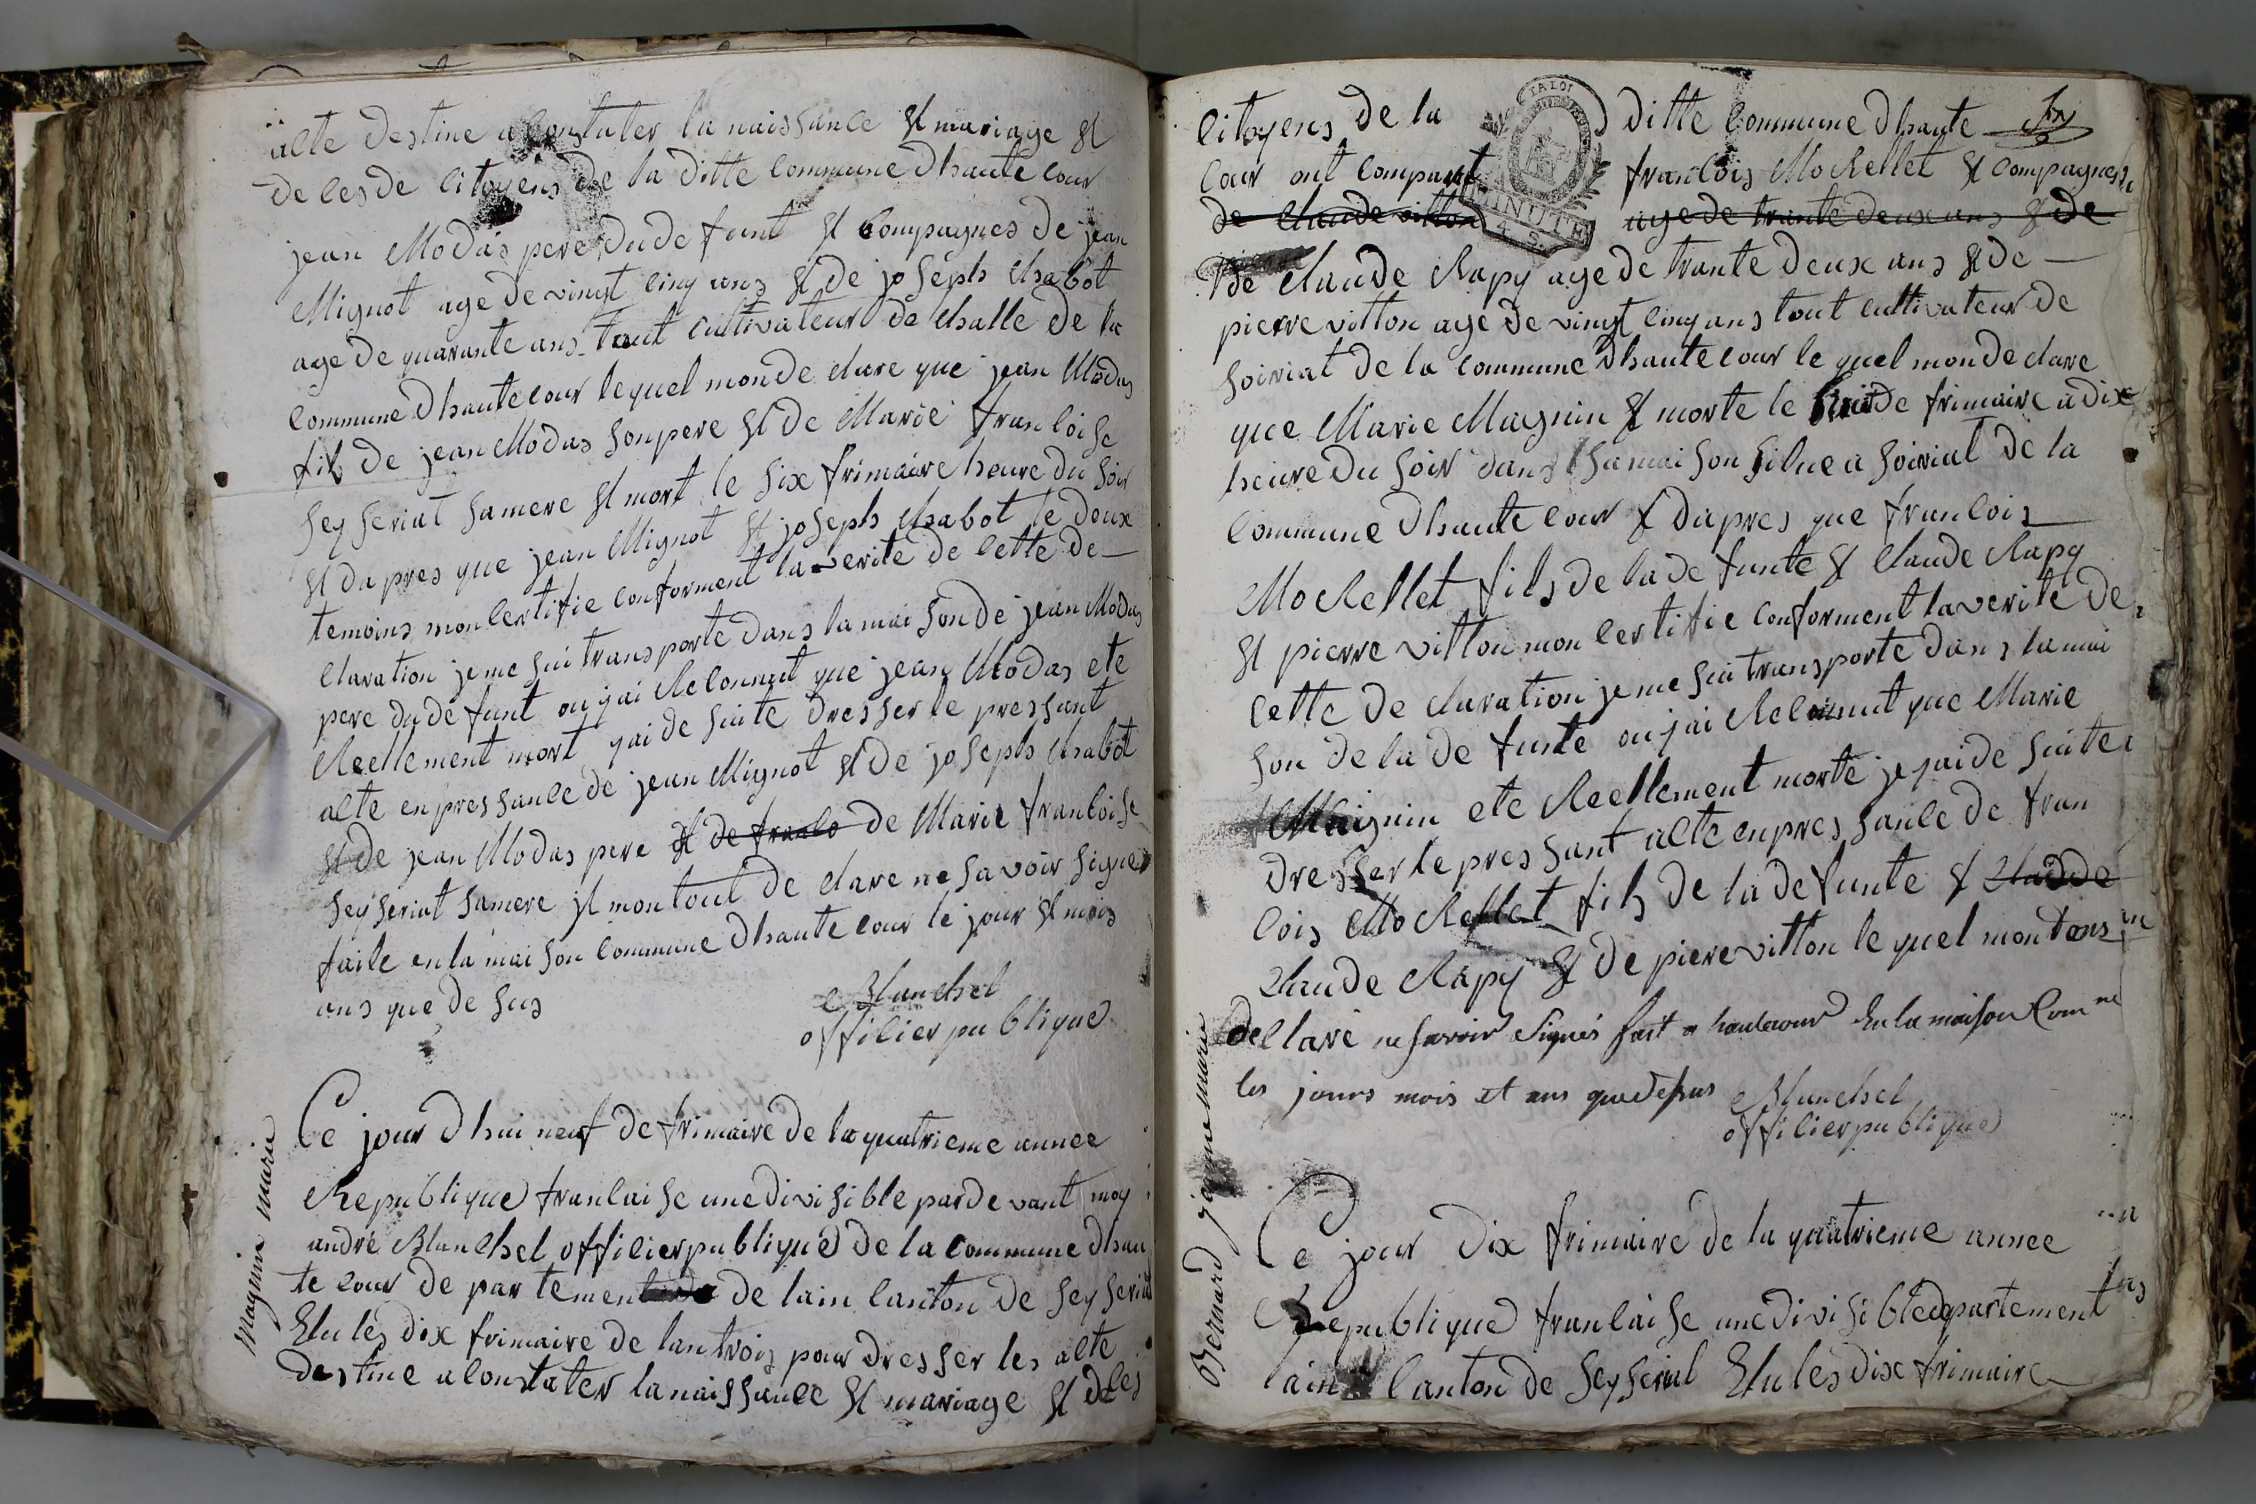 alte destine a Constater la naissance et mariage et
de ces de citoyens de la ditte Commune dhaute cour
jean Modas pere du de funt et Compagnes de jean
Mignot age de vingt cinq ans et de joseph Chabot
age de quarante ans tout cultivateur de Challe de la
Commune dhautecour lequel mon de clare que jean Modas
fils de jean Modas son pere et de Marie francoise
seyseriat sa mere et mort le six frimaire heure du soir
et da pres que jean Mignot et joseph Chabot le deux
temoins mon certifie conforment la verite de cette de
claration je me sui transporte dans la mai son de jean Modas
pere du de funt ou jai Reconnut que jean Modas ete
Reellement mort jai de suite dresser le pressant
alte en pressance de jean Mignot et de joseph Chabot
et de jean Modas pere et de franco de Marie francoise
sey seriat sa mere jl mon tout de clare ne savoir signer
faite en la mai son Commune dhaute cour le jour et mois
ans que de sus
Blanchet
officier publique
Magnin marie
Ce jour dhui neuf de frimaire de la quatrieme annee
Republique francaise une divisible par de vant moy
andre Blanchet officier publique de la Commune dhau
te cour de par tement de lain canton de sey seriat
Elu les dix frimaire de lan trois pour dresser les alte
destine a constater la naissance et mariage et de ces
citoyens de la ditte Commune dhaute
cour ont comparut francois Mo Rellet et compagnes
de Claude vitton age de trante deux ans et de
De Claude Rapy age de trante deux ans et de
pierre vitton age de vingt cinq ans tout cultivateur de
soiriat de la commune dhautecour le quel mon de clare
que Marie Magnin et morte le huit de frimaire a dix
heure du soir dans sa mai son situe a soiriat de la
Commune dhaute cour et dapres que francois
Mo Rellet fils de la de funte et Claude Rapy
et pierre vitton mon certifie conforment la verite de
cette de claration je me sui transporte dans la mai
son de la de funte ou jai Reconnut que Marie
Maignin ete Reellement morte je jai de suite
dresser le pressant alte en pres sance de fran
cois Mo Rellet fils de la defunte et Claude
Claude Rapy et de piere vitton le quel mon tous
declare ne savoir Signés fait a hautecour En la maison Comne
les jours mois et ans que dessus Blanchet
officier publique
Bernard janne marie
Ce jour dix frimaire de la quatrieme annee
Republique francaise une divisible departement
lain canton de Seyseriat Elu les dix frimaire
LA LOI
MINUTE
4. S.